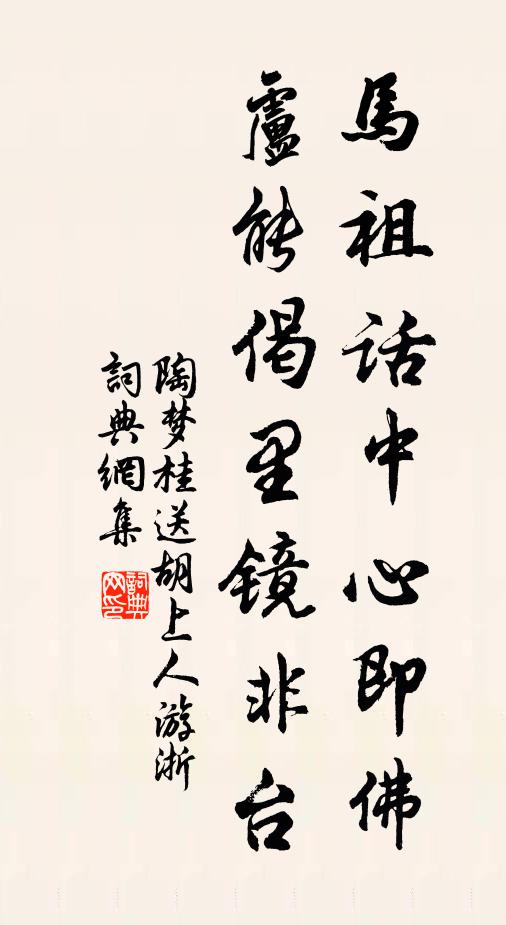 馬祖話中心即佛
盧能偈里镜非台
陶梦桂送胡上人游浙
詞典網集
詞典网印